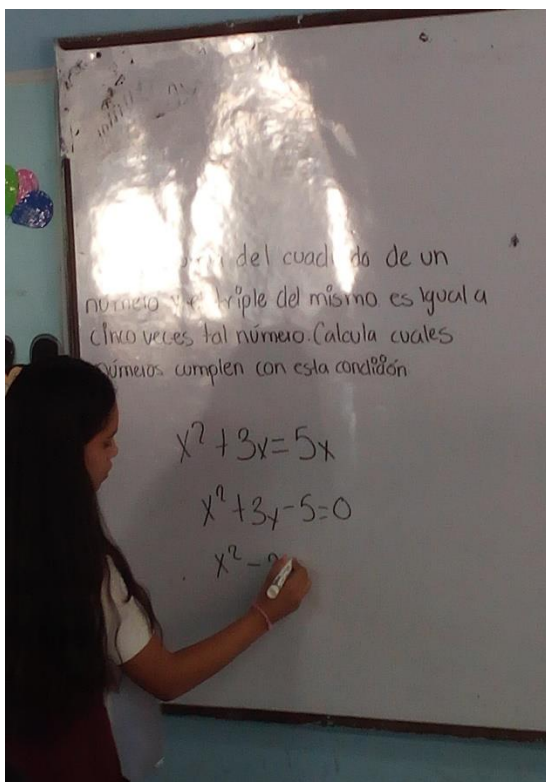 del cuadrado de un
número y el triple del mismo es igual a
cinco veces tal número. Calcula cuales
números cumplen con esta condición
x² + 3x = 5x
x² + 3x - 5 = 0
x² -